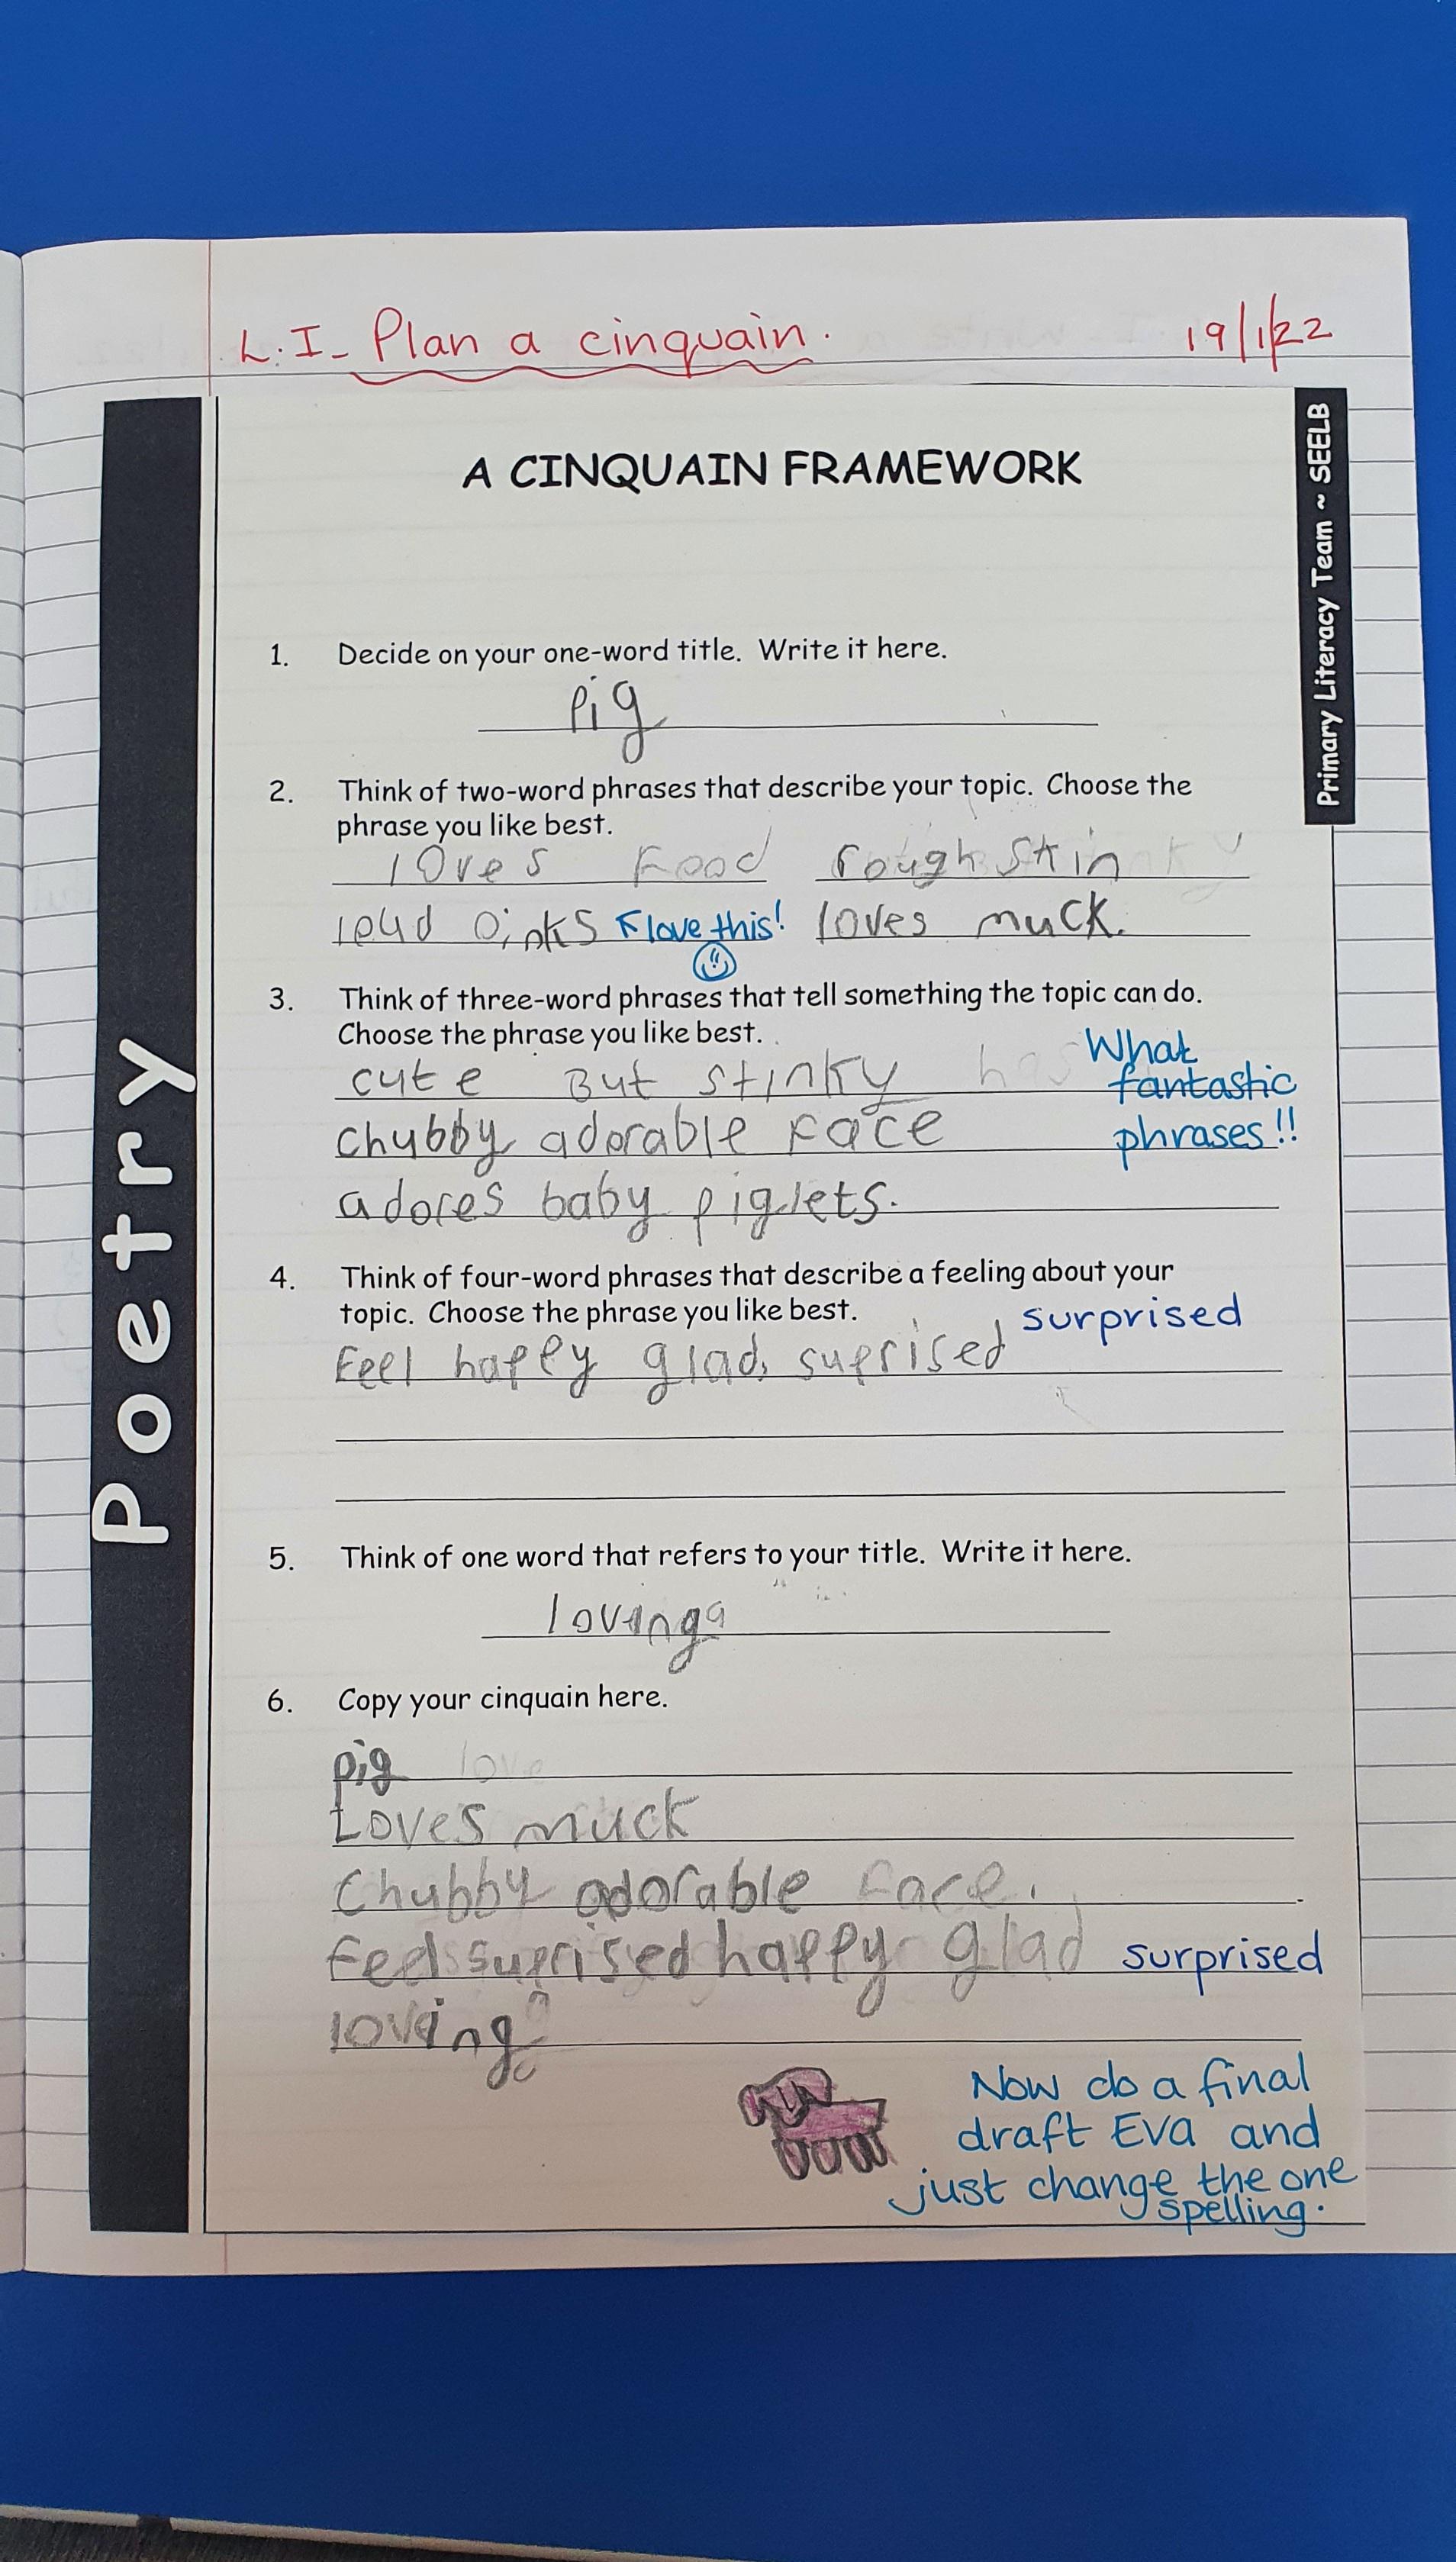 L.I- Plan a cinquain. 19/1/22
A CINQUAIN FRAMEWORK
Primary Literacy Team ~ SEELB
Poetry
1. Decide on your one-word title. Write it here.
pig
2. Think of two-word phrases that describe your topic. Choose the
phrase you like best.
loves Food rough skin
loud oinks love this! loves muck.
3. Think of three-word phrases that tell something the topic can do.
Choose the phrase you like best.
What
cute But stinky fantastic
chubby adorable Face phrases!!
adores baby piglets.
4. Think of four-word phrases that describe a feeling about your
topic. Choose the phrase you like best. surprised
Feel happy glad, suprised
5. Think of one word that refers to your title. Write it here.
loving
6. Copy your cinquain here.
pig
Loves muck
Chubby adorable Face.
Feel suprised happy glad surprised
loving
Now do a final
draft Eva and
just change the one
spelling.